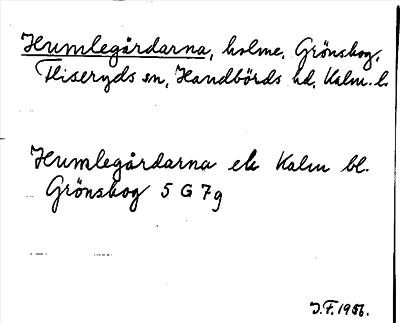 Humlegårdarna, holme, Grönskog,
Fliseryds sn, Handbörds hd, Kalm. l.
Humlegårdarna ek Kalm bl.
Grönskog 5 G 7g
J.F. 1956.